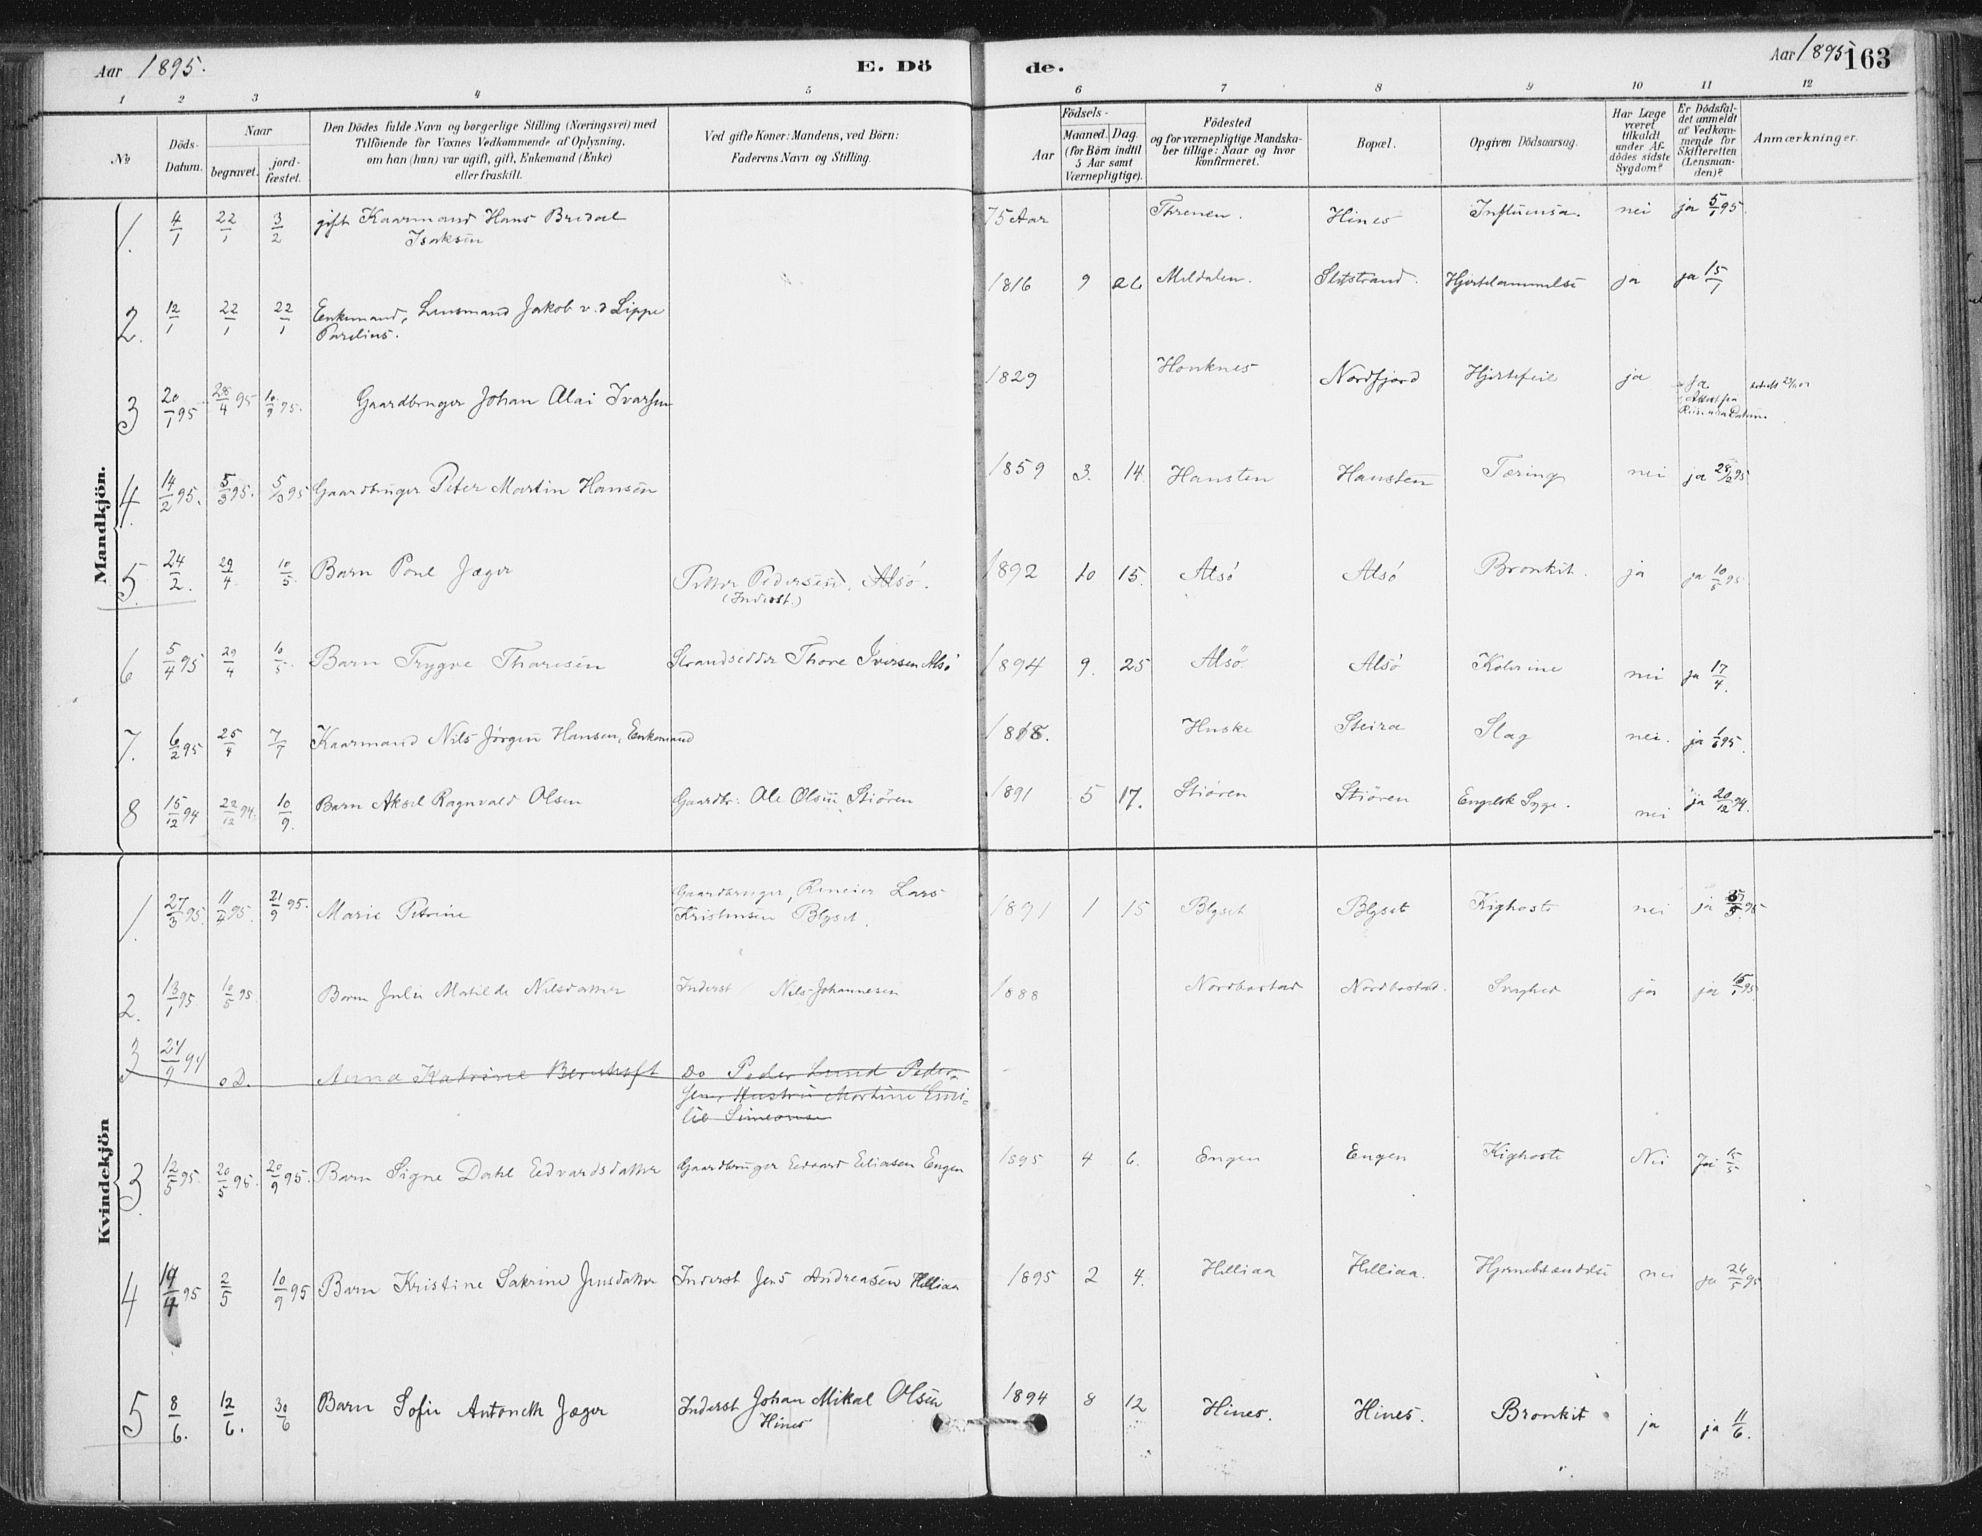 Aar 1895.
E. Dö
de.
Aar 1895
163
1 2 3 4 5 6 7 8 9 10 11 12
No
Döds-Datum.
Naar
begravet.
jord-fæstet.
Den Dödes fulde Navn og borgerlige Stilling (Næringsvei) med
Tilföiende for Voxnes Vedkommende af Oplysning,
om han (hun) var ugift, gift, Enkemand (Enke)
eller fraskilt.
Ved gifte Koner: Mandens, ved Börn:
Faderens Navn og Stilling.
Födsels-
Aar
Maaned. Dag.
(for Börn indtil
5 Aar samt
Værnepligtige).
Födested
og for værnepligtige Mandska-
ber tillige: Naar og hvor
konfirmeret.
Bopæl.
Opgiven Dödsaarsag.
Har Læge
været
tilkaldt
under Af-
dödes sidste
Sygdom?
Er Dödsfal-
det anmeldt
af Vedkom-
mende for
Skifteretten
(Lensman-
den)?
Anmærkninger.
Mandkjön.
1. 4/1 22/1 3/2 gift Kaarmand Hans Bredal 75 Aar Threnen. Hines Influensa. nei ja 5/1 95.
Isaksen
2. 12/1 22/1 22/1 Enkemand, Lensmand Jakob v. d Lippe 1816 9 26 Meldalen. Hjertelammelse ja ja 15/1
Parelius.
3 20/1 95 28/4 95 10/9 95. Gaardbruger Johan Alai Ivarsen 1829 Honknes Nordfjord Hjertefeil ja ja
4. 14/2 95. 5/3 95. 5/3 95 Gaardbruger Peter Martin Hansen 1859 3. 14. Hansten Hansten Tæring nei ja 28/2 95
5. 24/2. 29/4. 10/5. Barn Poul Jæger Petter Pedersen, Alsö. 1892 10 15. Alsö Alsö Bronkit. ja ja 10/5 95.
(Inderst.)
6 5/4 95 29/4 10/5. Barn Trygve Thoresen Strandsidder Thore Iversen Alsö 1894 9. 25 Alsö Alsö Kolerine nei ja 17/4.
7. 6/2 95 25/4 7/9 Kaarmand Nils Jörgen Hansen, Enkemand 1818. Huske Steira Slag nei. ja 1/6 95.
8 15/12 94 22/12 94. 10/9. Barn Aksel Ragnvald Olsen Gaardbr: Ole Olsen Stiören 1891 5 17. Stiören Stiören Engelsk Syge. nei ja 20/12 94.
Kvindekjön
1. 27/3 95. 11/4 95. 21/9 95. Marie Petrine Gaardbruger, Lars 1891 1 15 Blyset Blyset Kighoste nei ja 95
Kristensen Blyset.
2. 13/1 95. 10/5 95. Barn Julie Matilde Nilsdatter Inderst Nils Johannesen 1888 Nordbostad Nordbostad. Svaghed ja ja 15/1 95.
3 24/9 94 o D. Anna Katrine Bernhoft Do Peder Lund Peder-
sen, Hustru Martine Emi-
lie Simeonsen
3. 12/5 95. 20/5 95. 20/9 95. Barn Signe Dahl Edvardsdatter Gaardbruger Edvard Eliasen Engen 1895 4 6. Engen Engen Kighoste Nei Ja 15/5
4 19/4 95 2/5 10/9 95 Barn Kristine Sakrine Jensdatter Inderst Jens Andreasen Helliaa 1895 2 4. Helliaa Helliaa. Hjernebetændelse nei ja 26/5 95
5 8/6. 12/6. 30/6 Barn Sofie Antonette Jæger Inderst Johan Mikal Olsen 1894 8 12 Hines. Hines. Bronkit ja ja 11/6.
Hines